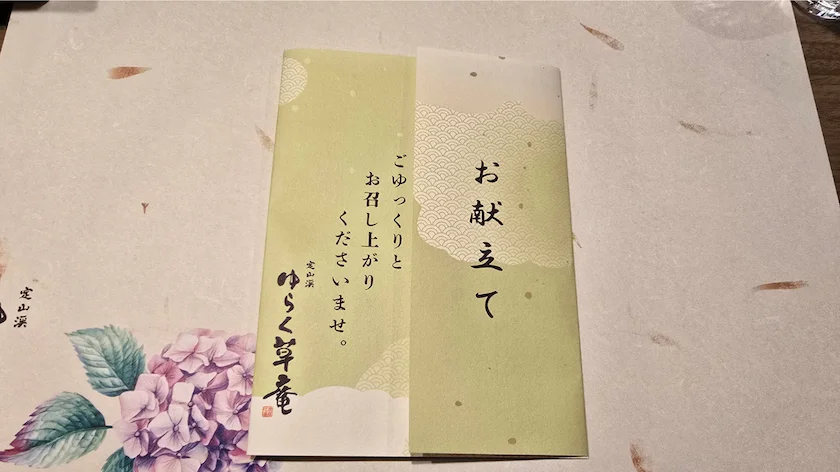 お献立て
ごゆっくりと
お召し上がり
くださいませ。
定山渓
ゆらく草庵
定山渓